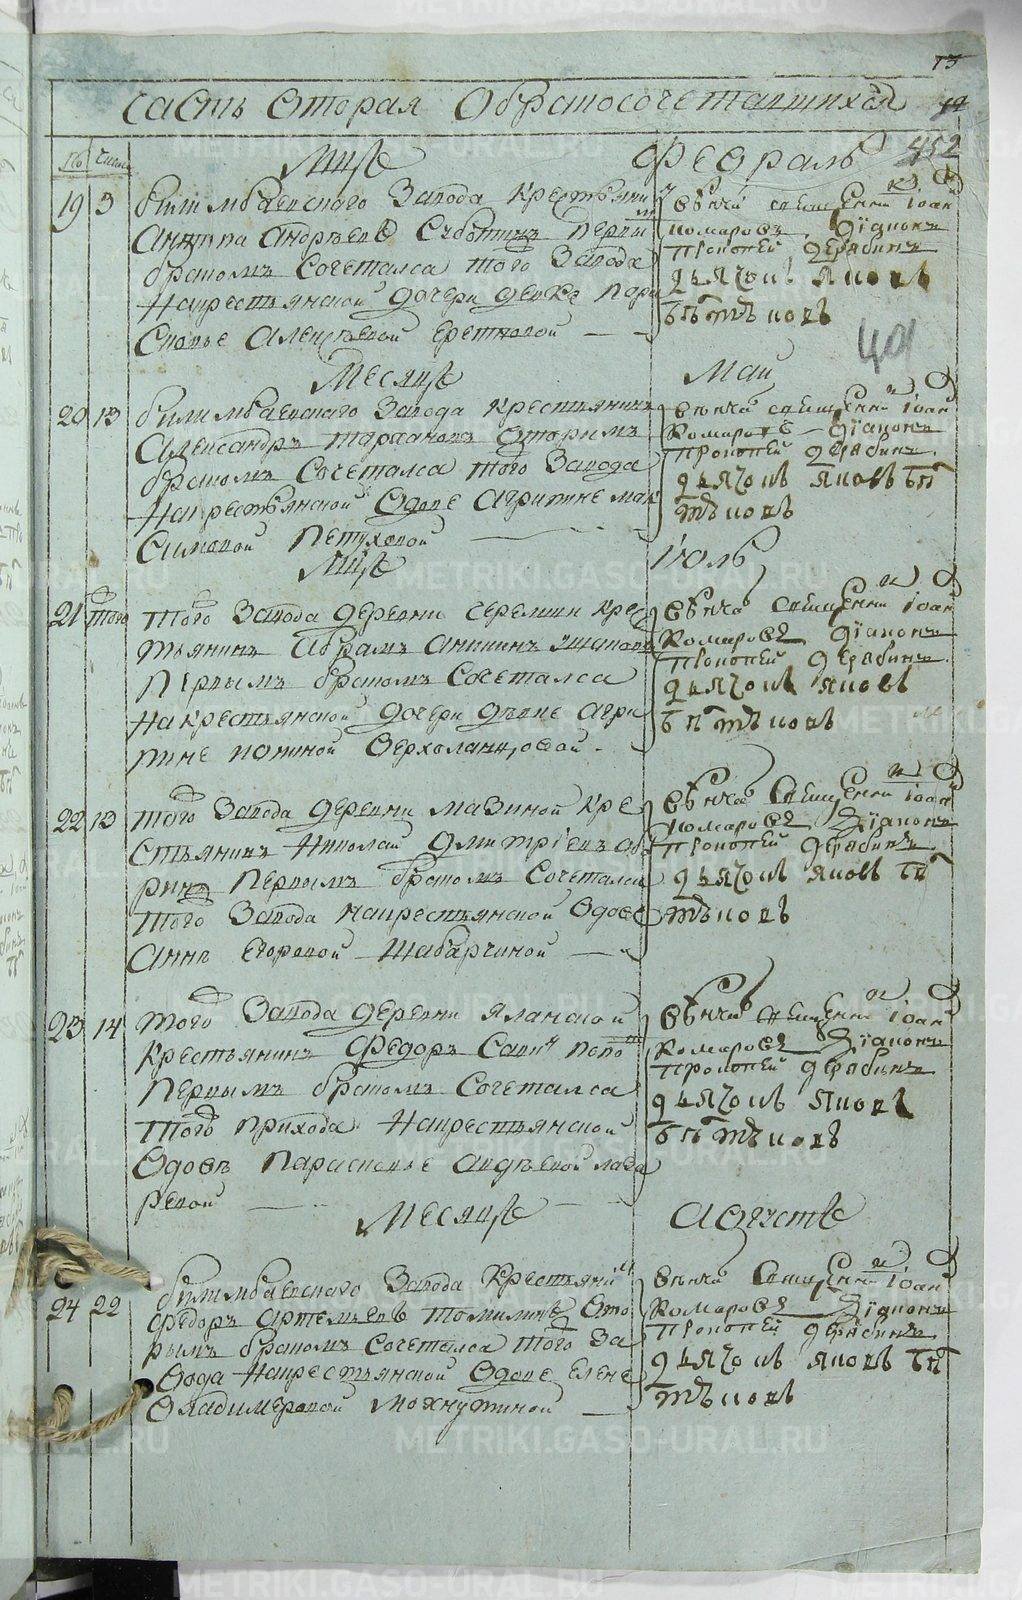 13
часть вторая о бракосочетавшихся
452
№ число мцъ февраль
19 3 билимбаевского завода крестьянинъ
Антипа Андреевъ Субботинъ первы
бракомъ сочетался того завода
на крестьянской дочери девке Пара
сковье Алексѣевой Еретновой
вѣнчалъ священникъ Iоаннъ
Комаровъ дiаконъ
Прокопей Дерябинъ
дьячокъ Яковъ
Бѣтѣковъ
401
месяцъ май
20 13 билимбаевского завода крестьянинъ
Александръ Таркановъ вторымъ
бракомъ сочетался того завода
на крестьянской вдове Агрипине Мак
симовой Петуховой
вѣнчалъ священникъ Iоаннъ
Комаровъ дiаконъ
Прокопей Дерябинъ
дьячокъ Яковъ Бѣ
тѣковъ
мцъ iюль
21 того того завода деревни крес
тьянинъ Абрамъ
первымъ бракомъ сочетался
на крестьянской дочери дѣвке Агри
пине Верхоланцовой
вѣнчалъ священникъ Iоаннъ
Комаровъ дiаконъ
Прокопей Дерябинъ
дьячокъ Яковъ
Бѣтѣковъ
22 13 того завода деревни Мазиной кре
стьянинъ Николай Дмитрiевъ
первымъ бракомъ сочетался
того завода на крестьянской вдове
Анне Егоровой Шабарчиной
вѣнчалъ священникъ Iоаннъ
Комаровъ дiаконъ
Прокопей Дерябинъ
дьячокъ Яковъ Бѣ
тѣковъ
23 14 того завода деревни Яланской
крестьянинъ Федоръ Савин Попо
первымъ бракомъ сочетался
того прихода на крестьянской
вдовѣ Парасковье Авдѣевой Лаза
ревой
вѣнчалъ священникъ Iоаннъ
Комаровъ дiаконъ
Прокопей Дерябинъ
дьячокъ Яковъ
Бѣтѣковъ
месяцъ августъ
24 22 билимбаевского завода крестьянинъ
Федоръ Артемьевъ Томилинъ вто
рымъ бракомъ сочетался того за
вода на крестьянской вдове Елене
Владимеровой Мохнуткиной
вѣнчалъ священникъ Iоаннъ
Комаровъ дiаконъ
Прокопей Дерябинъ
дьячокъ Яковъ Бѣ
тѣковъ
METRIKI.GASO-URAL.RU